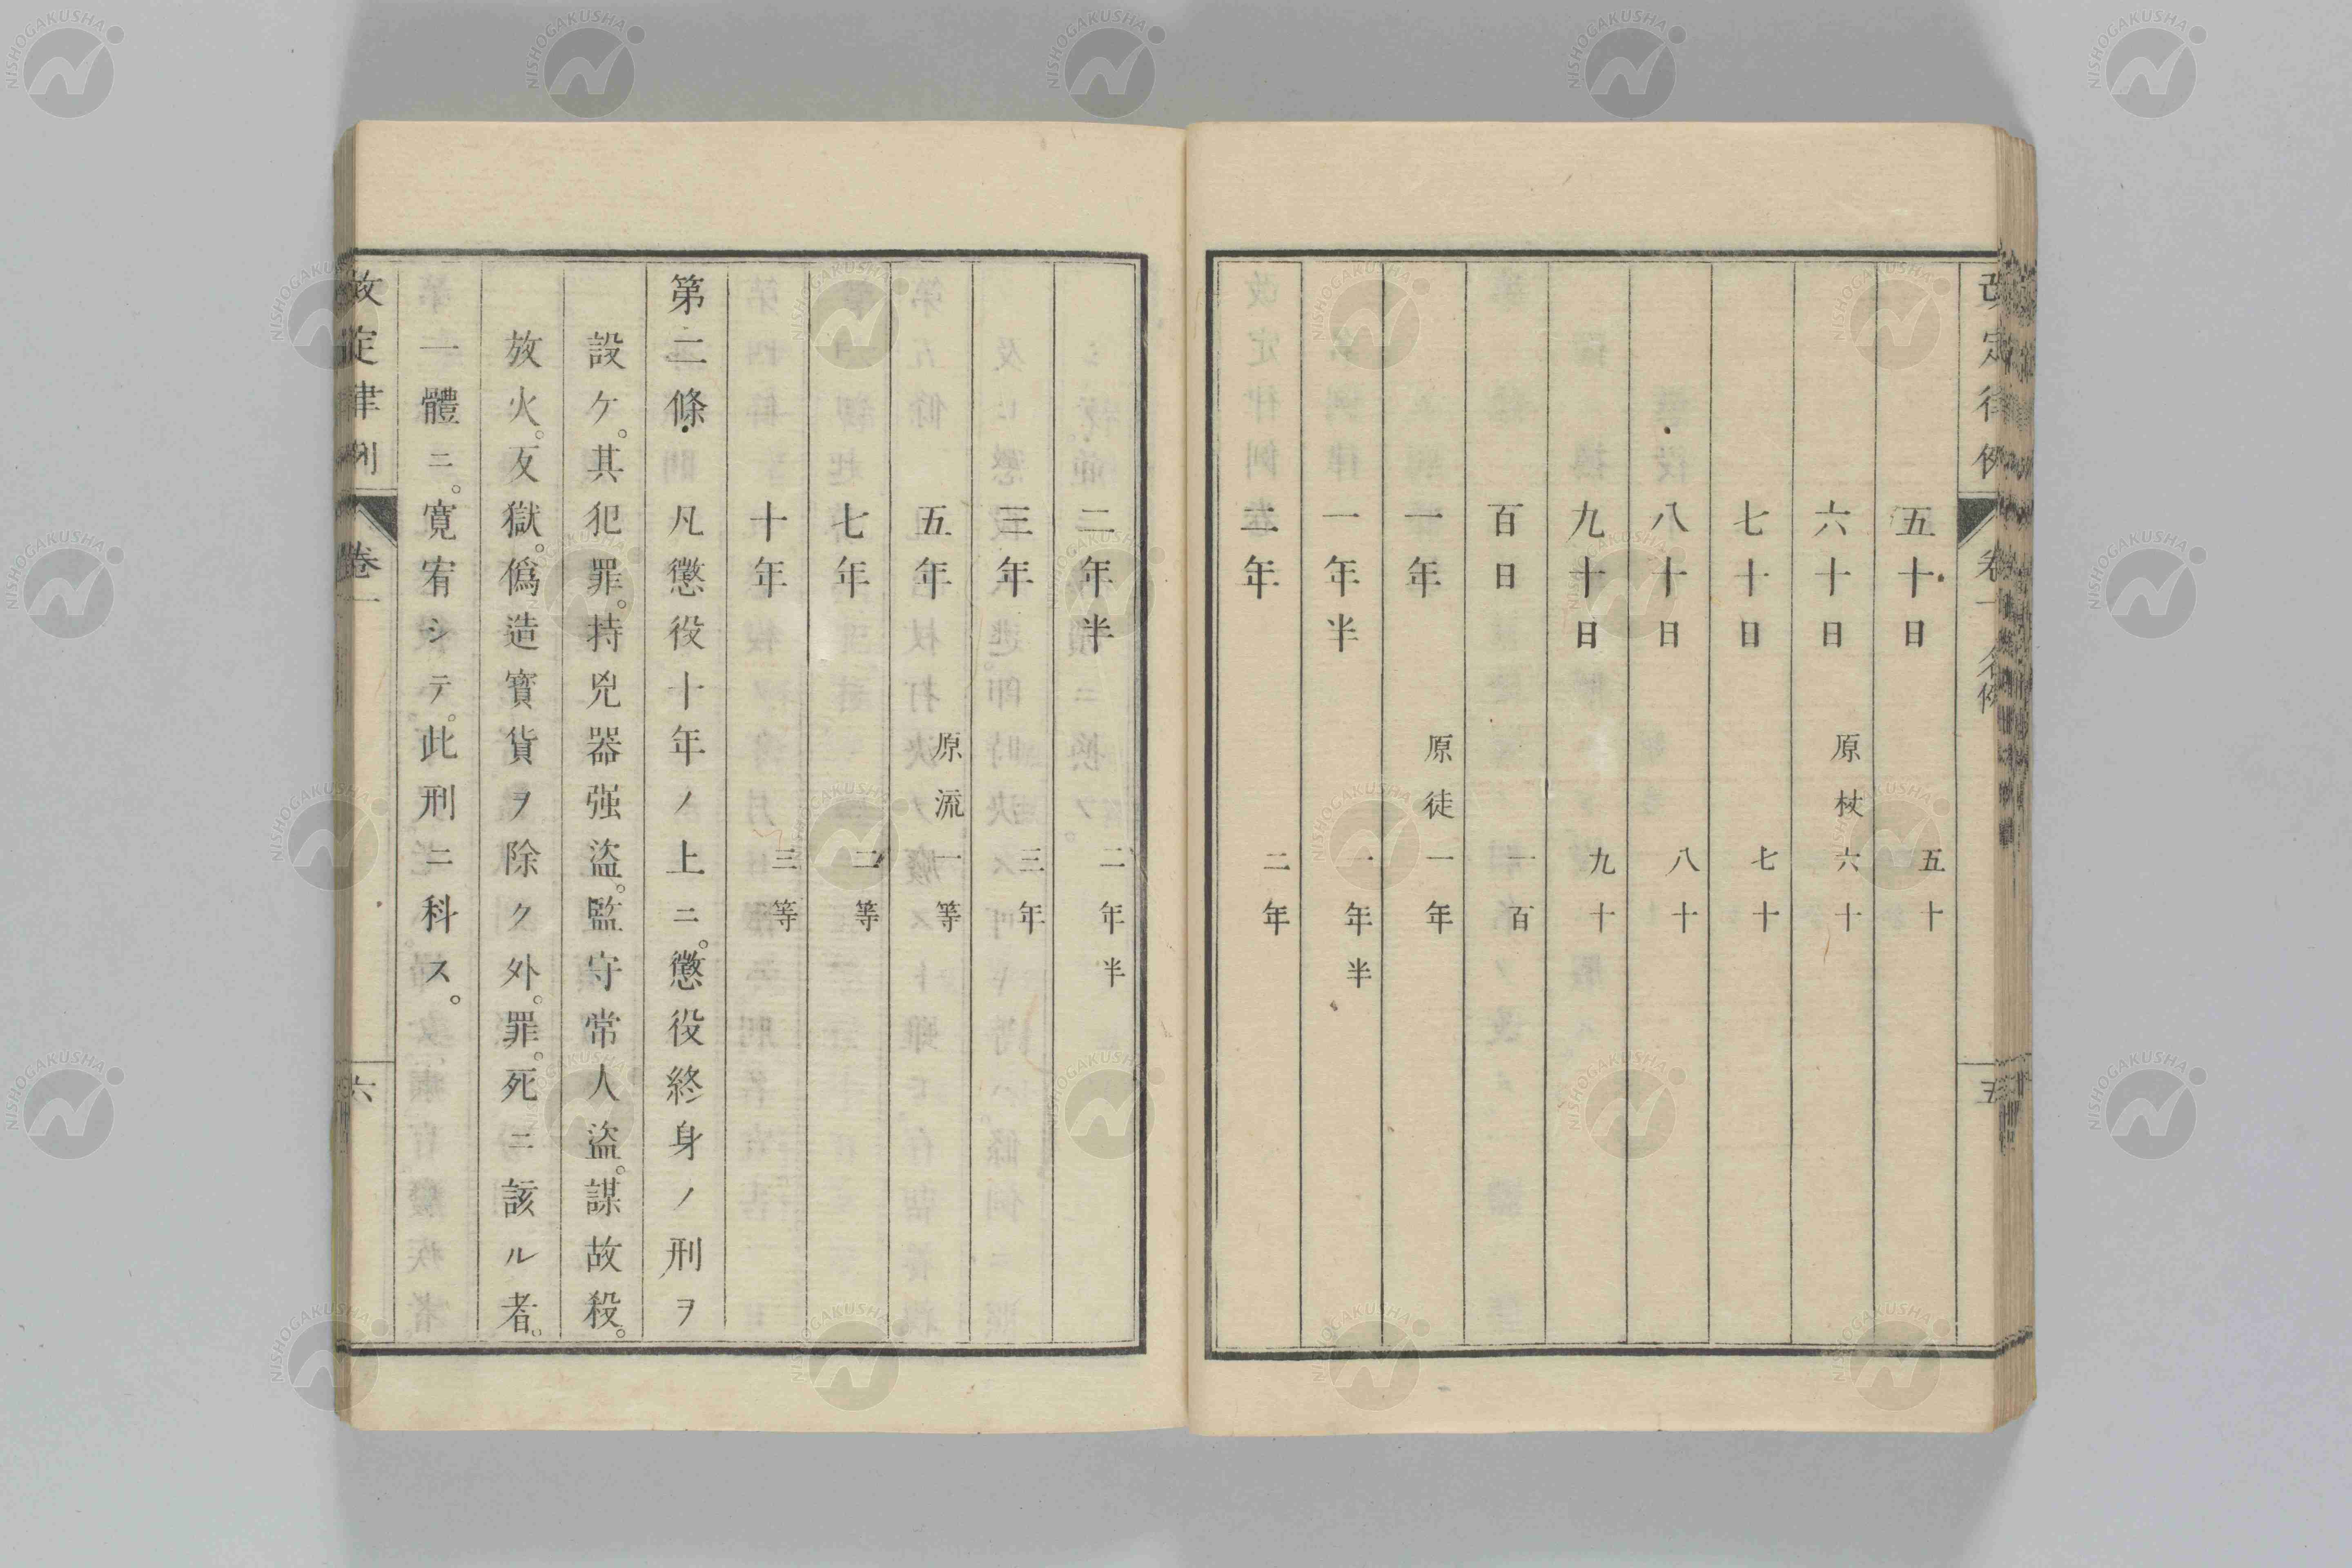 改定律例 卷一 名例 五
五十日 五十
六十日 原杖 六十
七十日 七十
八十日 八十
九十日 九十
百日 一百
一年 原徒 一年
一年半 一年半
二年 二年
二年半 二年半
三年 三年
五年 原流 一等
七年 二等
十年 三等
第二條 凡懲役十年ノ上ニ。懲役終身ノ刑ヲ
設ケ。其犯罪。持兇器强盜。監守常人盜。謀故殺。
放火。反獄。僞造寳貨ヲ除ク外。罪。死ニ該ル者。
一體ニ。寛宥シテ。此刑ニ科ス。
改定律例 卷一 六
NISHOGAKUSHA